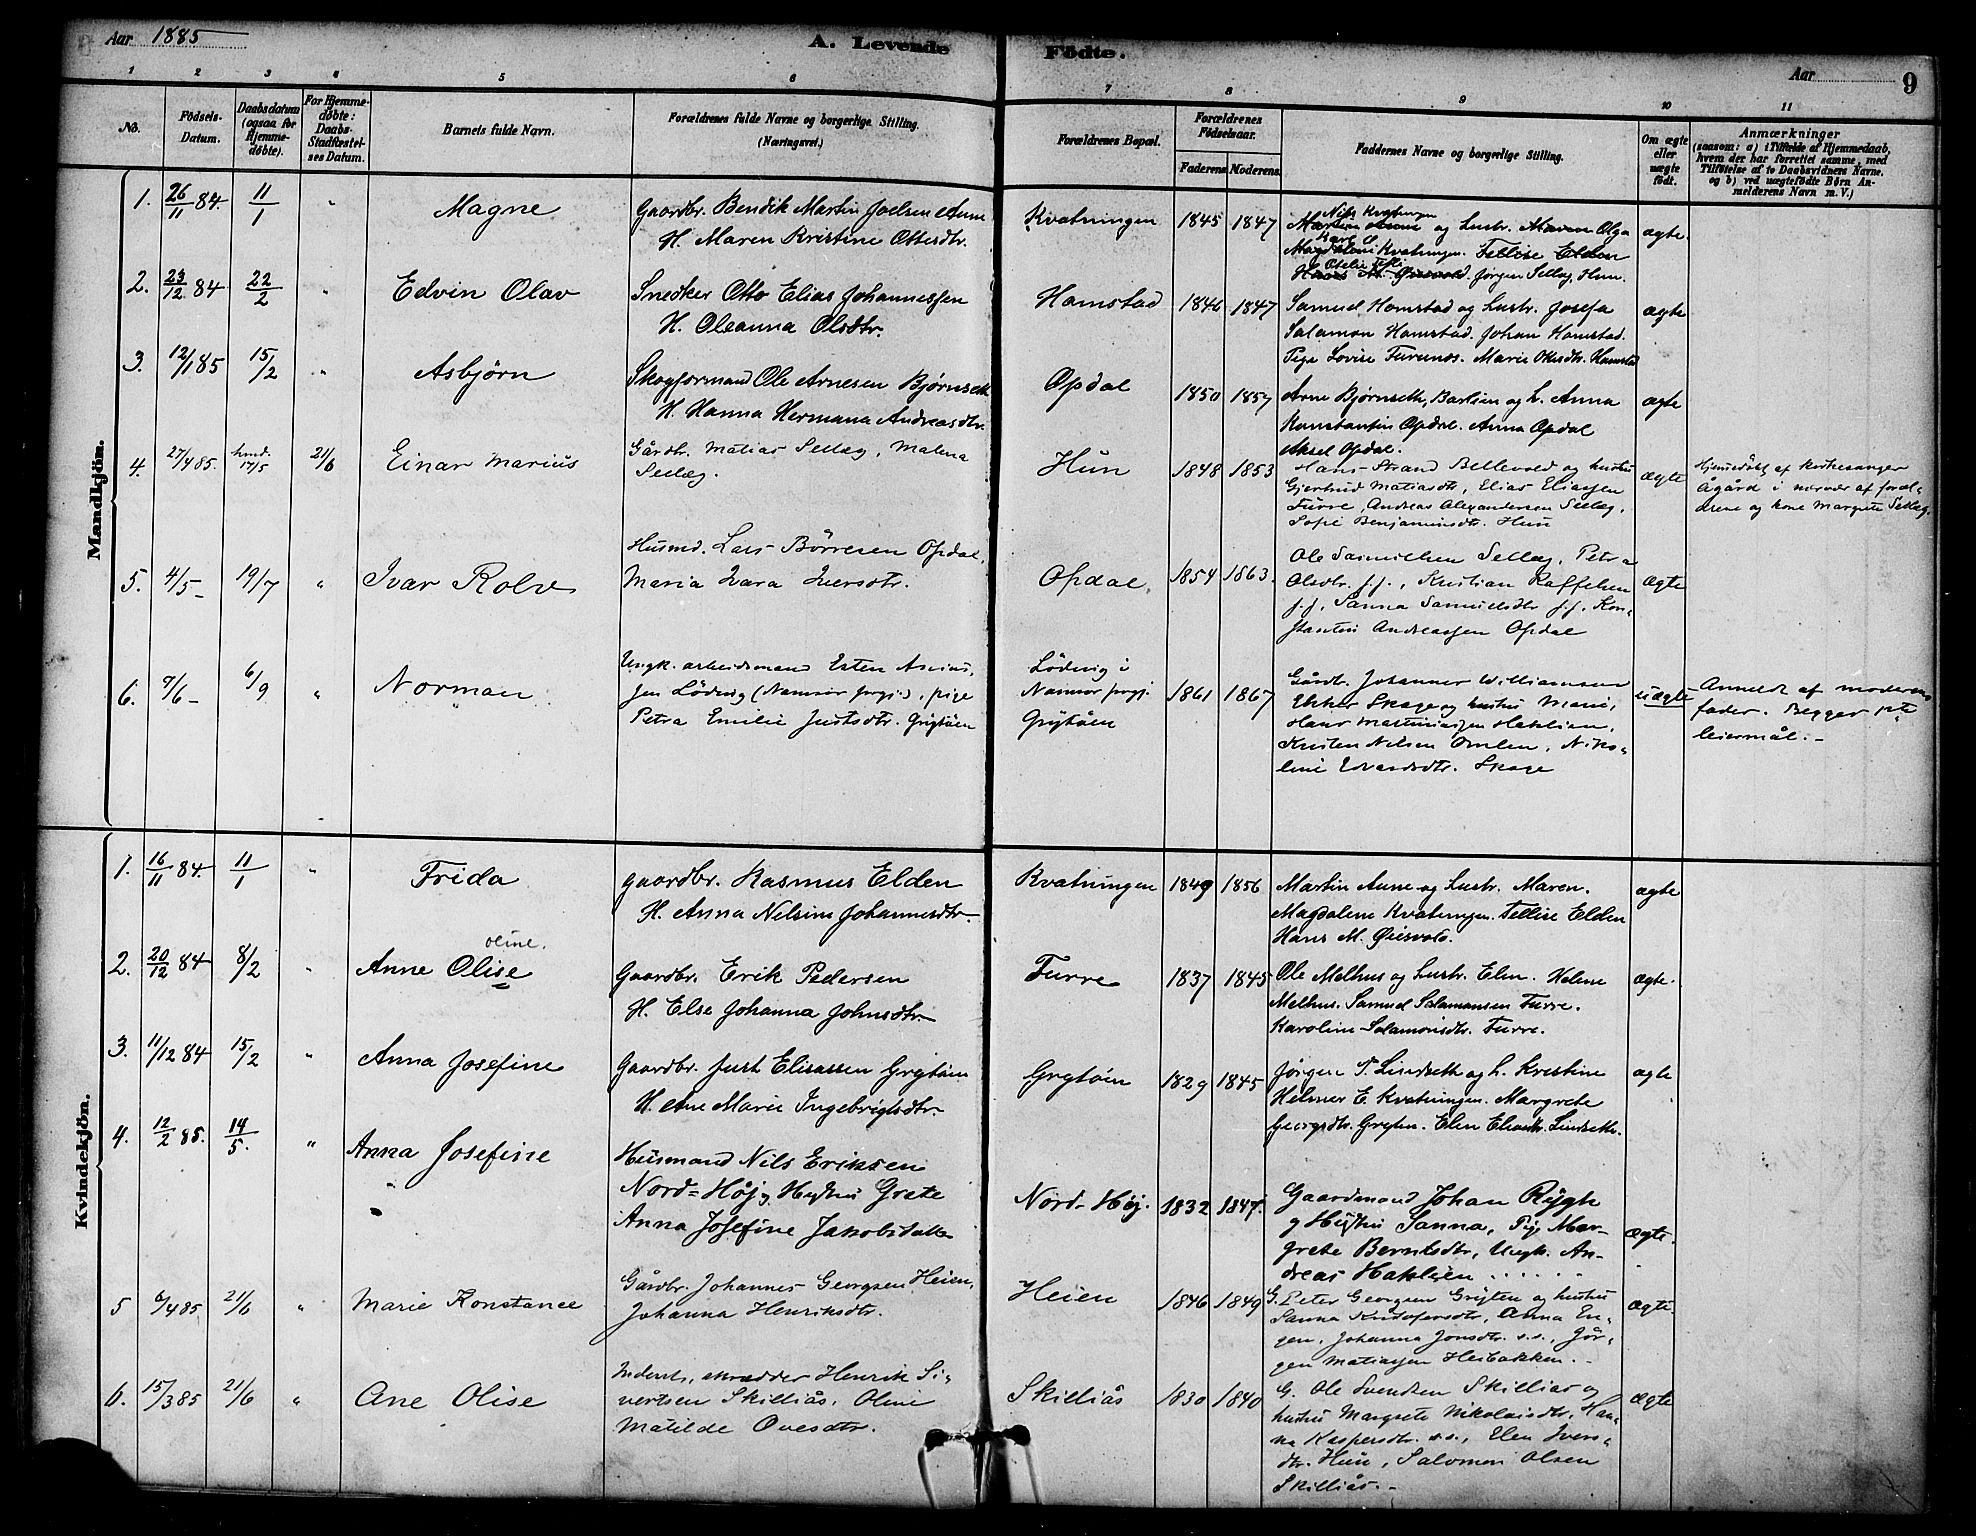 Aar 1885
A. Levende Födte.
Aar 9
1 2 3 4 5 6 7 8 9 10 11
No.
Födsels-Datum.
Daabsdatum (ogsaa for Hjemme-döbte).
For Hjemme-döbte: Daabs-Stadfæstel-ses Datum.
Barnets fulde Navn.
Forældrenes fulde Navne og borgerlige Stilling.
(Næringsvei.)
Forældrenes Bopæl.
Forældrenes Födselsaar.
Faderens Moderens
Faddernes Navne og borgerlige Stilling.
Om ægte eller uægte födt.
Anmærkninger
(saasom: a) i Tilfælde af Hjemmedaab,
hvem der har forrettet samme, med
Tilföielse af to Daabsvidners Navne.
og b) ved uægtefödte Börn An-
melderens Navn m. V.)
Mandkjön.
1. 26/11 84. 11/1 " Magne
Gaardbr. Bendik Martin Joelsen Aune
H. Maren Kristine Ottesdtr.
Kvatningen 1845 1847
Nils Kvatningen
og Hustr. Maren Olga
Kvatningen. Tellise Elden
Jørgen Sellæg, Hun.
ægte.
2. 23/12 84 22/2 " Edvin Olav
Snedker Otto Elias Johannessen
H. Oleanna Olsdtr.
Hamstad 1846 1847
Samuel Hamstad og Hustr. Josefa
Salamon Hamstad. Johan Hamstad.
Pige Lovise Furunes. Marie Olesdtr. Hamstad
ægte
3. 12/1 85 15/2 " Asbjörn
Skogformand Ole Arnesen Bjørnseth
H. Hanna Hermana Andreasdtr.
Opdal 1850 1857
Arne Bjørnseth, Barlien og h. Anna
Konstantin Opdal. Anna Opdal
Aksel Opdal.
ægte
4. 27/4 85. hmd. 17/5 21/6 Einar Marius
Gårdbr. Matias Sellæg, Malena
Sellæg.
Hun 1848 1853
Hans Strand Bellevold og hustru
Gjertrud Matiasdtr, Elias Eliassen
Furre, Andreas Alexandersen Sellæg,
Sofie Benjaminsdtr. Hun
ægte
Hjemmedöbt af kirkesanger
Ågård i nærvær af foræl-
drene og kone Margrete Sellæg.
5. 4/5 - 19/7 " Ivar Rolv
Husmd. Lars Börresen Opdal,
Maria Ivara Iversdtr.
Opdal 1854 1863.
Ole Samuelsen Sellæg, Petra
Olsdtr. s.s., Kristian Raffelsen
s.s., Sanna Samuelsdtr s.s. Kon-
stantin Andreassen Opdal
ægte
6. 7/6 - 6/9 " Norman
Ungk. arbeidsmand Esten Asvius-
sen Lödwig (Namsos prgj.), pige
Petra Emilie Justsdtr. Grytöien
Lödwig i
Namsos prgj.
Grytöen
1861 1867
Gårdb. Johannes Williamsen
Ekker Skage og hustru Marie,
Hans Martiniussen Haklien,
Kristen Nilsen Omlen, Niko-
line Edvardsdtr. Skage
uægte
Anmeldt af moderens
fader. Begges 1ste
leiermål. -
Kvindekjön.
1. 16/11 84. 11/1 " Frida
gaardbr. Rasmus Elden
H. Anna Nelsine Johannesdtr.
Kvatningen 1849 1856
Martin Aune og Hustr. Maren.
Magdalene Kvatningen. Tellise Elden
Hans M. Øiesvold.
ægte
2. 20/12 84 8/2 " Anne Olise oline.
Gaardbr. Erik Pedersen
H. Else Johanna Johnsdtr.
Furre 1837 1845
Ole Melhus og Hustr. Elen. Helene
Melhus. Samuel Salamonsen Furre.
Karoline Salamonsdtr. Furre.
ægte.
3. 11/12 84 15/2 " Anna Josefine
Gaardbr. Just Elisassen Grytöien
H. Ane Marie Ingebrigtsdtr.
Grytöien 1829 1845
Jørgen P. Lindseth og h. Kristine
Helmer E. Kvatningen. Margrete
Georgsdtr. Grytøn. Elen Eliasdtr. Lindseth.
ægte
4. 12/2 85. 14/5. " Anna Josefine
Husmand Nils Eriksen
Nord-Höj og Hustru Grete
Anna Josefine Jakobsdatter
Nord-Höj. 1832 1847.
Gaardmand Johan Rygh
og Hustru Sanna, Pige Mar-
grete Berntsdtr, Ungk. An-
dreas Haklien
ægte.
5 6/4 85 21/6 " Marie Konstance
Gårdbr. Johannes Georgsen Heien,
Johanna Henriksdtr.
Heien 1846 1849
G. Peter Georgsen Grytøen og hustru
Sanna Kristofersdtr, Anna En-
gen, Johanna Jonsdtr. s.s., Jör-
gen Matiassen Heibakken. -
ægte.
6. 15/3 85 21/6 " Ane Olise
Inderst, skrædder Henrik Si-
vertsen Skilliås, Oline
Matilde Ovesdtr.
Skilliås 1830 1840
G. Ole Svendsen Skilliås og
hustru Margrete Nikolaisdtr, Han-
na Kaspersdtr. s.s., Elen Ivers-
dtr. Hun, Salomon Olsen
Skilliås. -
ægte